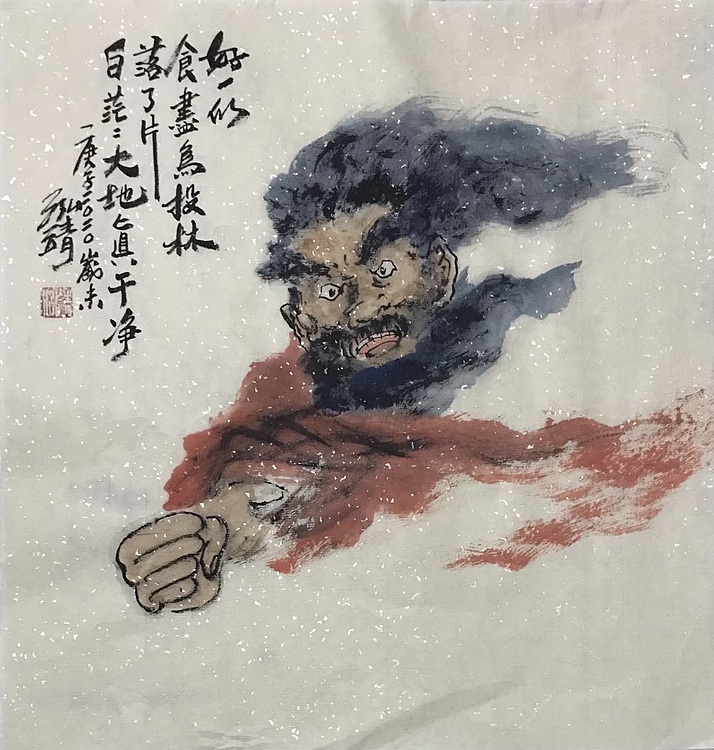 好一似
食盡鳥投林
落了片
白茫〻大地真干净
庚子二〇二〇嵗末